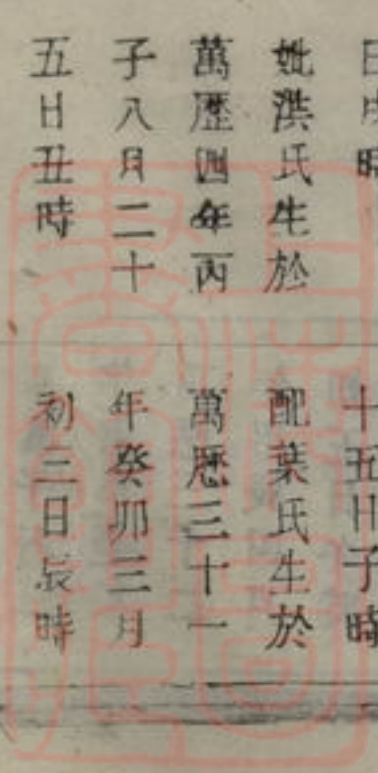 日戌時
妣洪氏生於
萬歷四年丙
子八月二十
五日丑時
十五日子時
配葉氏生於
萬歷三十一
年癸卯三月
初三日辰時